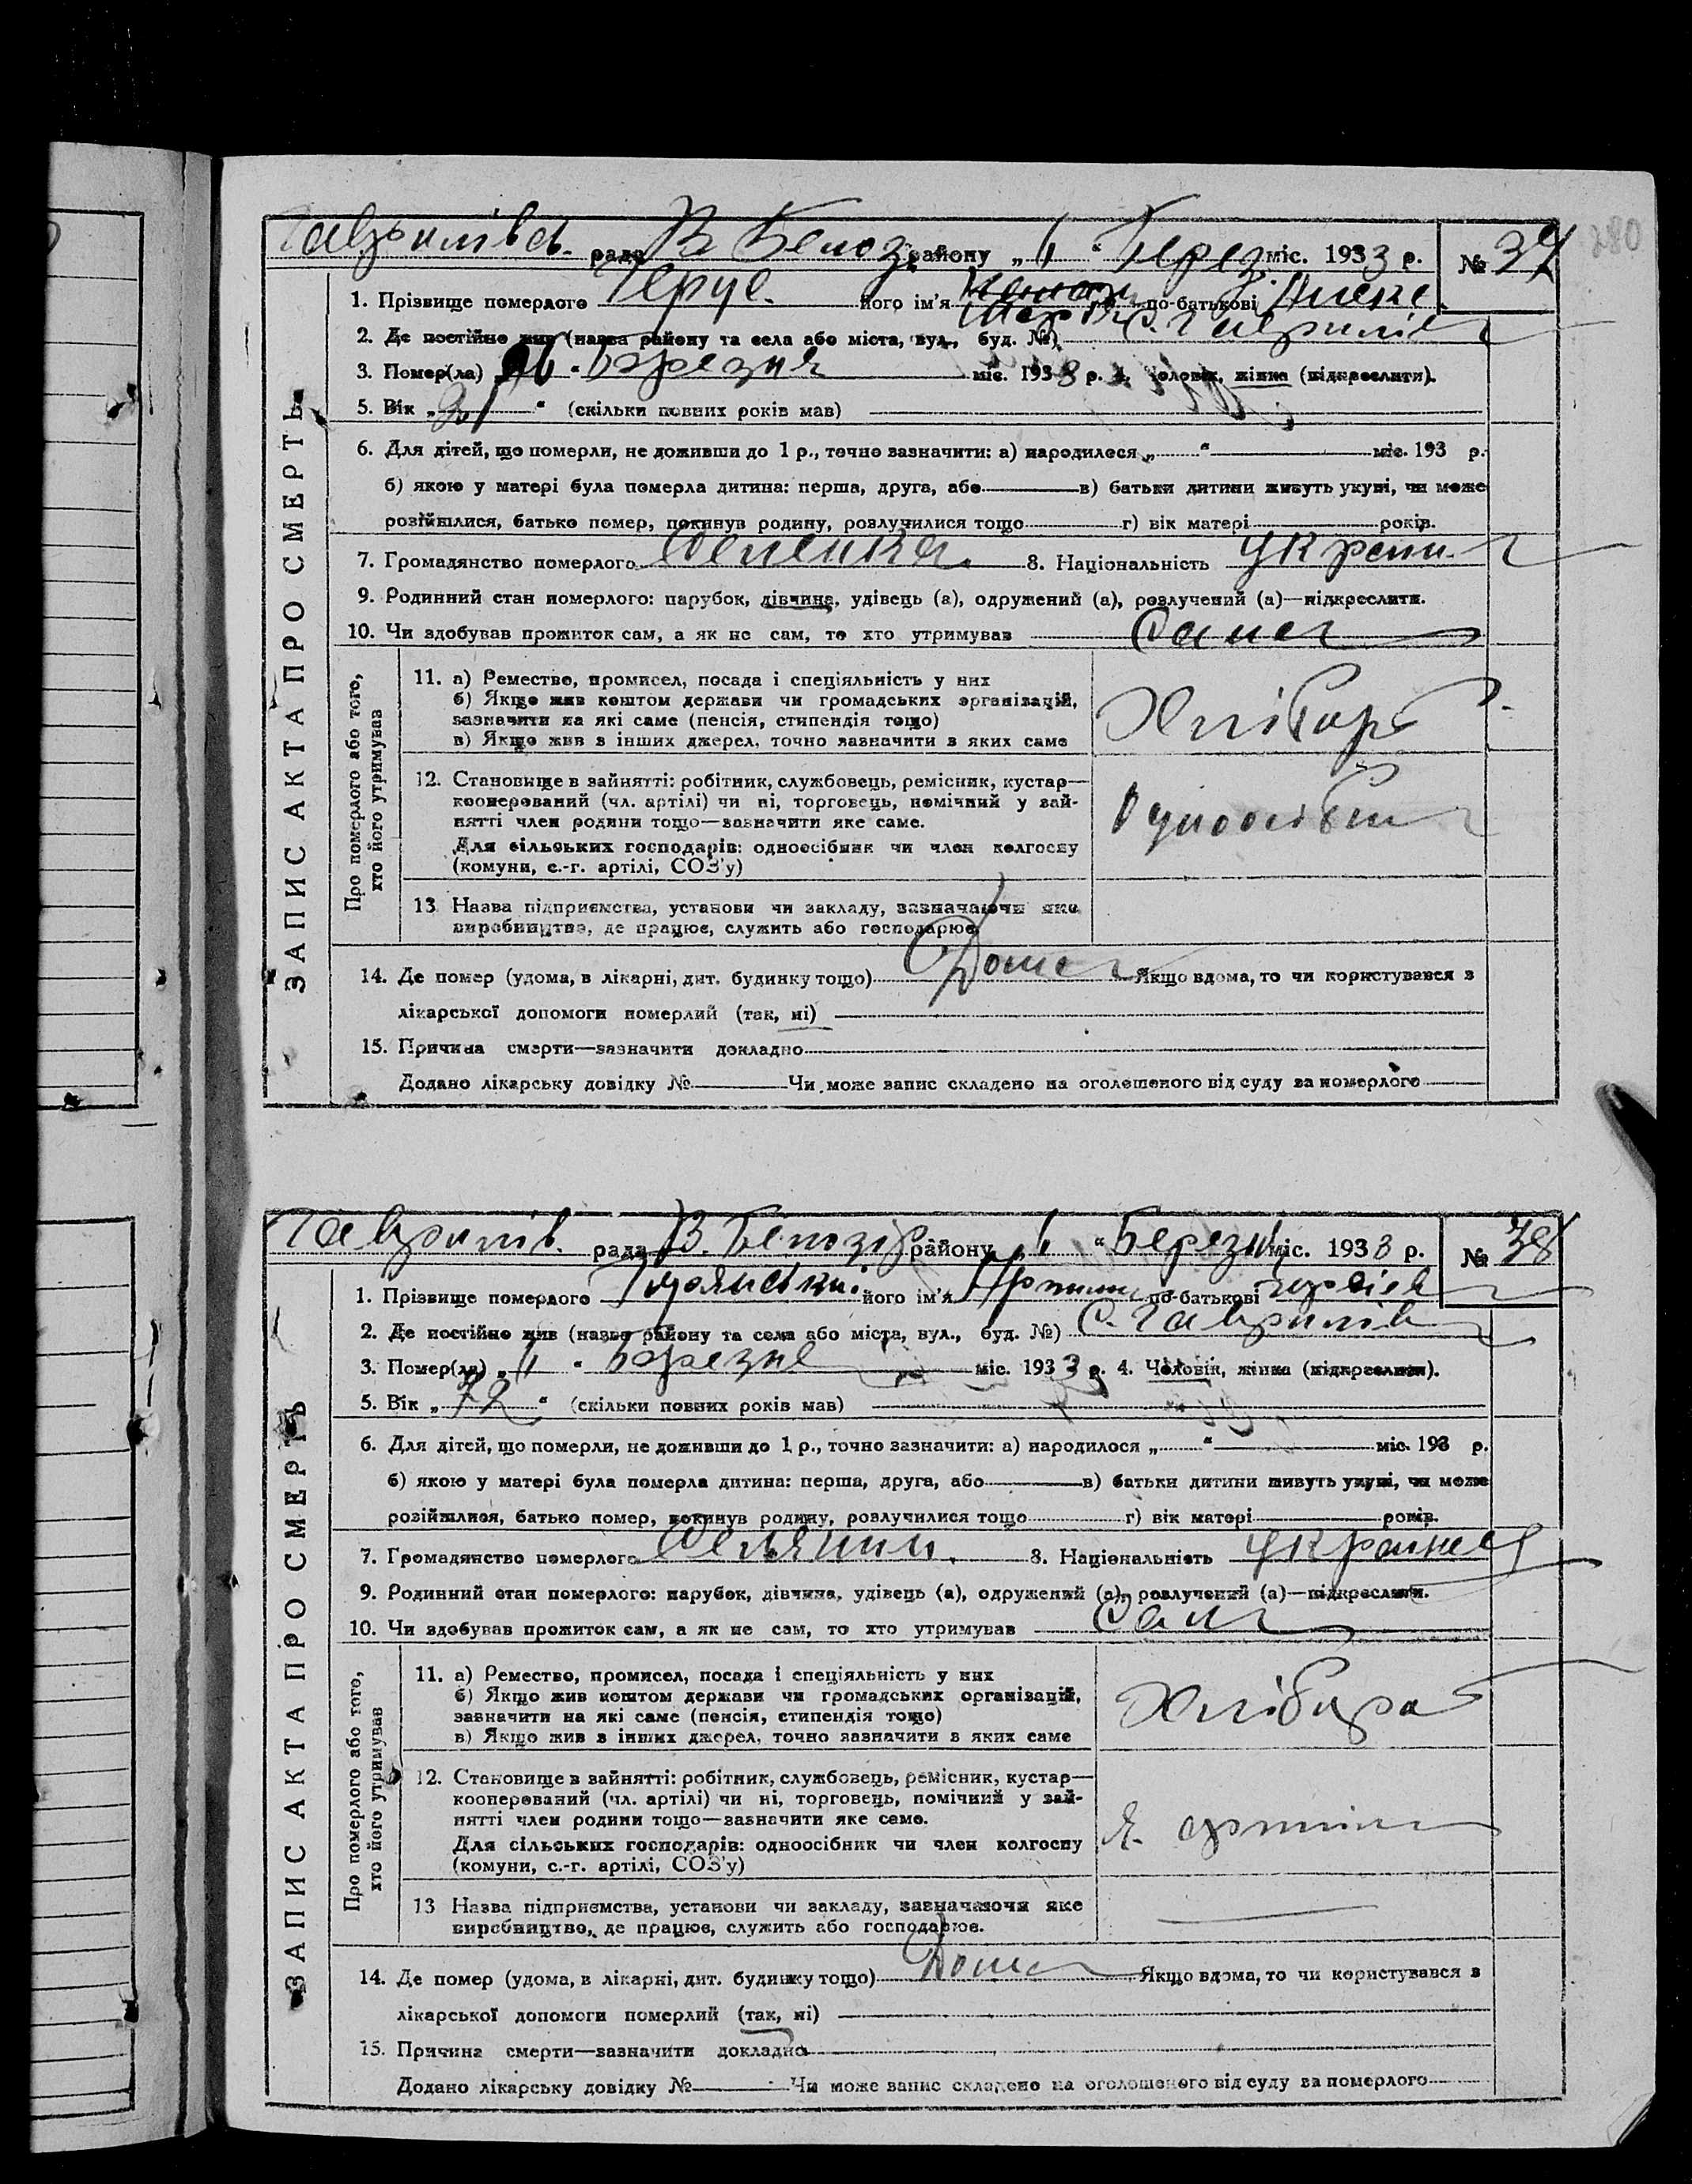 280
Гаврилівс. рада В Білоз. району „1“ Берез. міс. 1933 р. № 37
1. Прізвище померлого його ім'я по-батькові
2. Де постійно жив (назва району та села або міста, вул., буд. №) С. Гаврилів
3. Помер(ла) Березня міс. 1933 р. 4. Чоловік, жінка (підкреслити).
5. Вік „ “ (скільки повних років мав)
6. Для дітей, що померли, не доживши до 1 р., точно зазначити: а) народилося „ “ міс. 193 р.
б) якою у матері була померла дитина: перша, друга, або в) батьки дитини живуть укупі, чи може
розійшлися, батько помер, покинув родину, розлучилися тощо г) вік матері років.
7. Громадянство померлого Селянка. 8. Національність Украін.
9. Родинний стан померлого: парубок, дівчина, удівець (а), одружений (а), розлучений (а)—підкреслити.
10. Чи здобував прожиток сам, а як не сам, то хто утримував Сама
ЗАПИС АКТА ПРО СМЕРТЬ
Про померлого або того,
хто його утримував
11. а) Ремество, промисел, посада і спеціяльність у них
б) Якщо жив коштом держави чи громадських організацій,
зазначити на які саме (пенсія, стипендія тощо)
в) Якщо жив з інших джерел, точно зазначити з яких саме
Хлібороб
12. Становище в зайнятті: робітник, службовець, ремісник, кустар—
кооперований (чл. артілі) чи ні, торговець, помічний у зай-
нятті член родини тощо—зазначити яке саме.
Для сільських господарів: одноосібник чи член колгоспу
(комуни, с.-г. артілі, СОЗ'у)
Одноосібн
13 Назва підприємства, установи чи закладу, зазначаючи яке
виробництво, де працює, служить або господарює.
14. Де помер (удома, в лікарні, дит. будинку тощо) Дома Якщо вдома, то чи користувався з
лікарської допомоги померлий (так, ні)
15. Причина смерти—зазначити докладно
Додано лікарську довідку № Чи може запис складено на оголошеного від суду за померлого
Гаврилів. рада В. Білозір району „1“ Березня міс. 1933 р. № 38
1. Прізвище померлого його ім'я по-батькові
2. Де постійно жив (назва району та села або міста, вул., буд. №) С. Гаврилів
3. Помер(ла) „1“ Березня міс. 1933 р. 4. Чоловік, жінка (підкреслити).
5. Вік „72“ (скільки повних років мав)
6. Для дітей, що померли, не доживши до 1 р., точно зазначити: а) народилося „ “ міс. 193 р.
б) якою у матері була померла дитина: перша, друга, або в) батьки дитини живуть укупі, чи може
розійшлися, батько помер, покинув родину, розлучилися тощо г) вік матері років.
7. Громадянство померлого Селянин. 8. Національність Украінец
9. Родинний стан померлого: парубок, дівчина, удівець (а), одружений (а), розлучений (а)—підкреслити.
10. Чи здобував прожиток сам, а як не сам, то хто утримував Сам
ЗАПИС АКТА ПРО СМЕРТЬ
Про померлого або того,
хто його утримував
11. а) Ремество, промисел, посада і спеціяльність у них
б) Якщо жив коштом держави чи громадських організацій,
зазначити на які саме (пенсія, стипендія тощо)
в) Якщо жив з інших джерел, точно зазначити з яких саме
Хлібороб
12. Становище в зайнятті: робітник, службовець, ремісник, кустар—
кооперований (чл. артілі) чи ні, торговець, помічний у зай-
нятті член родини тощо—зазначити яке саме.
Для сільських господарів: одноосібник чи член колгоспу
(комуни, с.-г. артілі, СОЗ'у)
13 Назва підприємства, установи чи закладу, зазначаючи яке
виробництво, де працює, служить або господарює.
14. Де помер (удома, в лікарні, дит. будинку тощо) Дома Якщо вдома, то чи користувався з
лікарської допомоги померлий (так, ні)
15. Причина смерти—зазначити докладно
Додано лікарську довідку № Чи може запис складено на оголошеного від суду за померлого